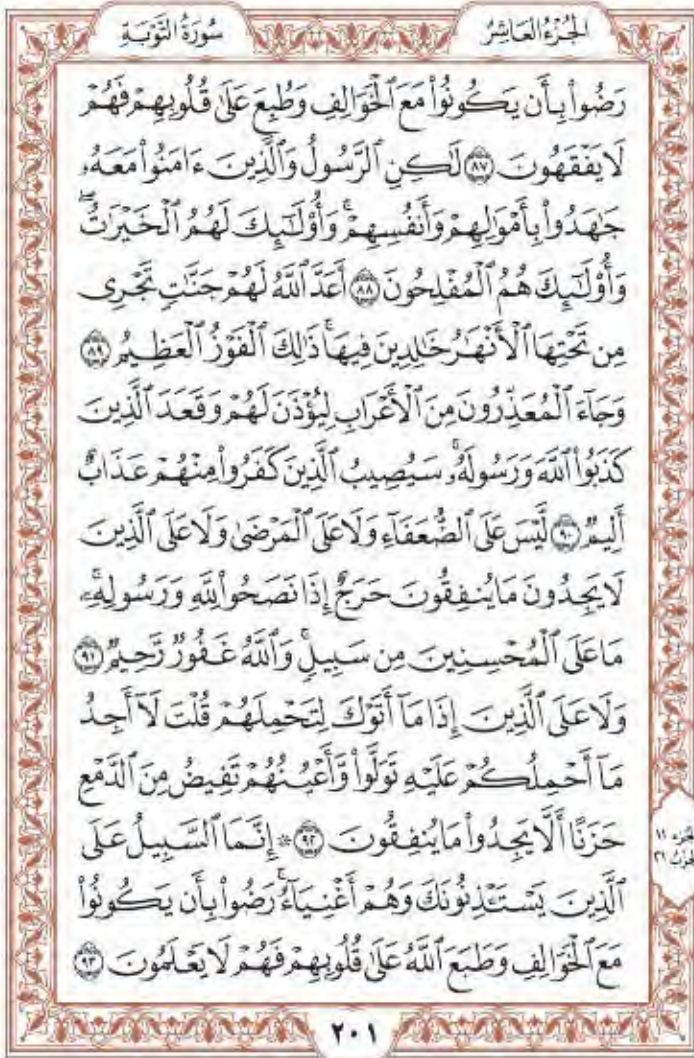 الجُزْءُ العَاشِرُ
سُورَةُ التَّوْبَةِ
رَضُوا۟ بِأَن يَكُونُوا۟ مَعَ ٱلْخَوَالِفِ وَطُبِعَ عَلَىٰ قُلُوبِهِمْ فَهُمْ
لَا يَفْقَهُونَ ۝٨٧ لَٰكِنِ ٱلرَّسُولُ وَٱلَّذِينَ ءَامَنُوا۟ مَعَهُۥ
جَٰهَدُوا۟ بِأَمْوَٰلِهِمْ وَأَنفُسِهِمْ ۚ وَأُو۟لَٰٓئِكَ لَهُمُ ٱلْخَيْرَٰتُ ۖ
وَأُو۟لَٰٓئِكَ هُمُ ٱلْمُفْلِحُونَ ۝٨٨ أَعَدَّ ٱللَّهُ لَهُمْ جَنَّٰتٍ تَجْرِى
مِن تَحْتِهَا ٱلْأَنْهَٰرُ خَٰلِدِينَ فِيهَا ۚ ذَٰلِكَ ٱلْفَوْزُ ٱلْعَظِيمُ ۝٨٩
وَجَآءَ ٱلْمُعَذِّرُونَ مِنَ ٱلْأَعْرَابِ لِيُؤْذَنَ لَهُمْ وَقَعَدَ ٱلَّذِينَ
كَذَبُوا۟ ٱللَّهَ وَرَسُولَهُۥ ۚ سَيُصِيبُ ٱلَّذِينَ كَفَرُوا۟ مِنْهُمْ عَذَابٌ
أَلِيمٌ ۝٩٠ لَّيْسَ عَلَى ٱلضُّعَفَآءِ وَلَا عَلَى ٱلْمَرْضَىٰ وَلَا عَلَى ٱلَّذِينَ
لَا يَجِدُونَ مَا يُنفِقُونَ حَرَجٌ إِذَا نَصَحُوا۟ لِلَّهِ وَرَسُولِهِۦ ۚ
مَا عَلَى ٱلْمُحْسِنِينَ مِن سَبِيلٍ ۚ وَٱللَّهُ غَفُورٌ رَّحِيمٌ ۝٩١
وَلَا عَلَى ٱلَّذِينَ إِذَا مَآ أَتَوْكَ لِتَحْمِلَهُمْ قُلْتَ لَآ أَجِدُ
مَآ أَحْمِلُكُمْ عَلَيْهِ تَوَلَّوا۟ وَّأَعْيُنُهُمْ تَفِيضُ مِنَ ٱلدَّمْعِ
حَزَنًا أَلَّا يَجِدُوا۟ مَا يُنفِقُونَ ۝٩٢ ۞ إِنَّمَا ٱلسَّبِيلُ عَلَى
ٱلَّذِينَ يَسْتَـْٔذِنُونَكَ وَهُمْ أَغْنِيَآءُ ۚ رَضُوا۟ بِأَن يَكُونُوا۟
مَعَ ٱلْخَوَالِفِ وَطَبَعَ ٱللَّهُ عَلَىٰ قُلُوبِهِمْ فَهُمْ لَا يَعْلَمُونَ ۝٩٣
٢٠١